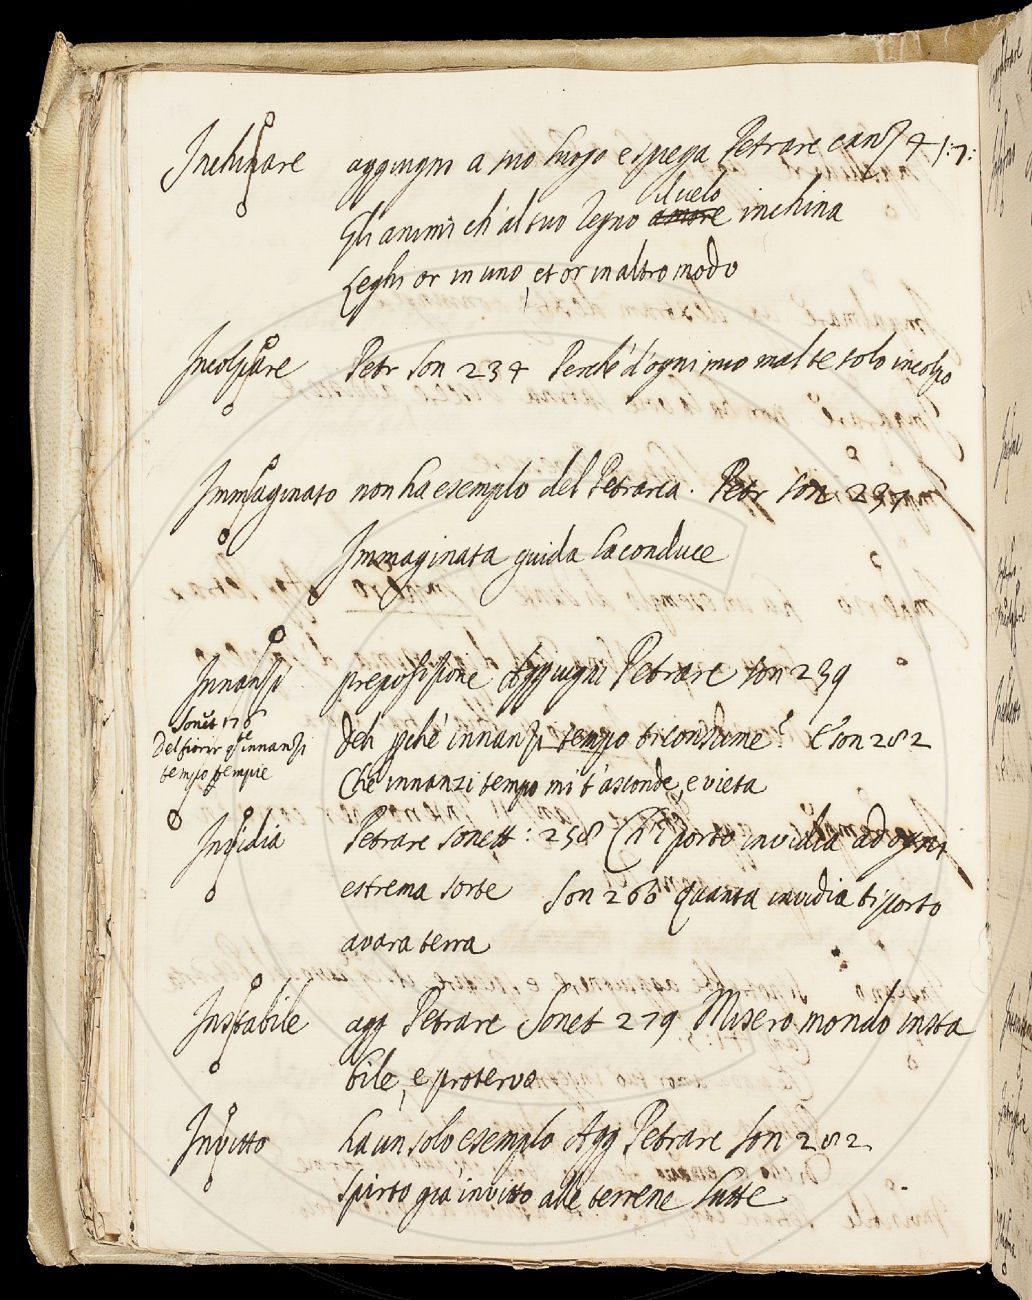 Inchinare aggiugni a suo luogo e spiega Petrarc canz 4
Gli animi ch'al suo Regno il cielo amore inchina
Leghi or in uno, et or in altro modo
Incolpare Petr Son 234 Perché d'ogni mio mal te solo incolpo
Immaginato non ha esemplo del Petrarca. Petr Son 237
Immaginata guida la conduce
Innanzi preposizione Aggiugni Petrarc son 239
deh pché innanzi tempo ti consume? E son 282
Che innanzi tempo mi t'asconde, e vieta
Sonet 176
Del fiorir qste innanzi
tempo tempie
Invidia Petrarc Sonett: 258 Ch'i porto invidia ad ogni
estrema sorte Son 260 Quanta invidia ti porto
avara terra
Instabile agg Petrarc Sonet 279 Misero mondo insta
bile, e protervo
Invitto ha un solo esemplo Agg Petrarc Son 282
Spirto già invitto alle terrene lutte